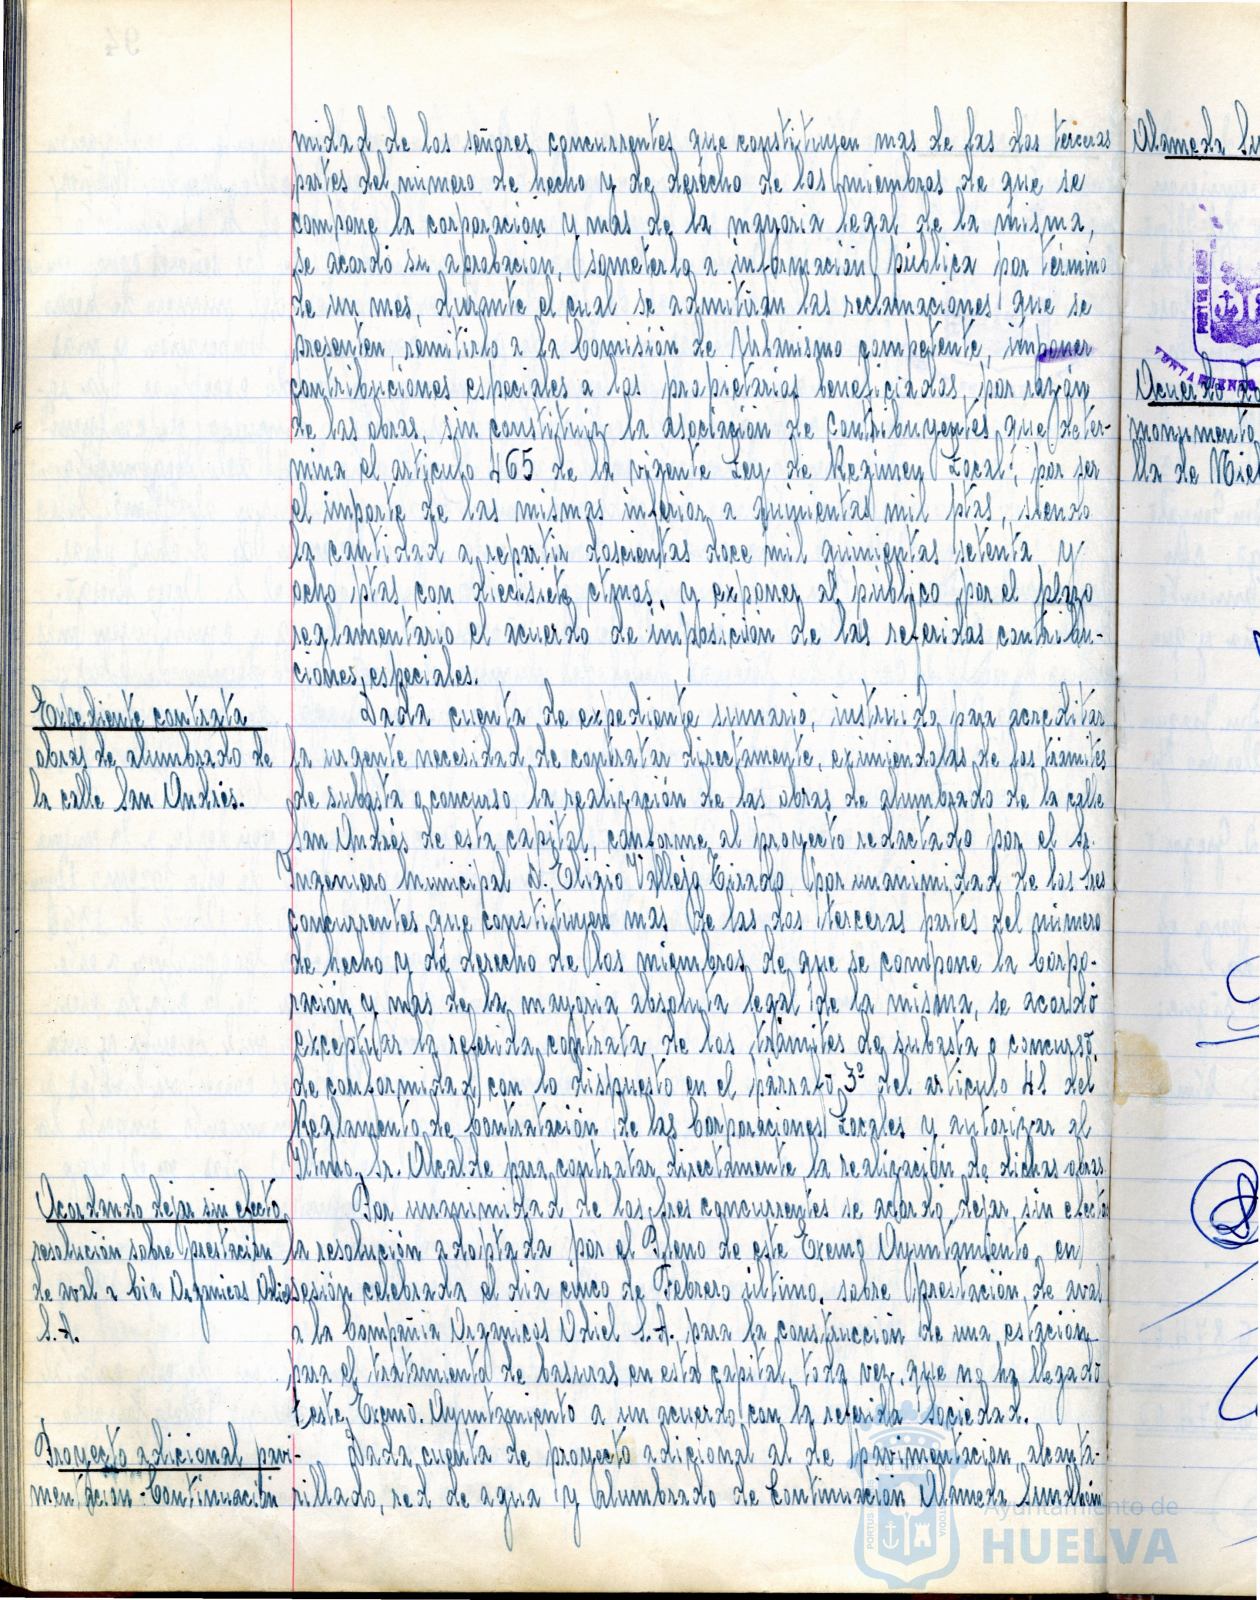 midad de los señores concurrentes que constituyen mas de las dos terceras
partes del número de hecho y de derecho de los miembros de que se
compone la corporación y mas de la mayoria legal de la misma,
se acordó su aprobación, someterlo a información pública por término
de un mes, durante el cual se admitirán las reclamaciones que se
presenten, remitirlo a la Comisión de Urbanismo competente, imponer
contribuciones especiales a los propietarios beneficiados, por razón
de las obras, sin constituir la asociación de Contribuyentes que deter-
mina el artículo 465 de la vigente Ley de Regimen Local, por ser
el importe de las mismas inferior a quinientas mil ptas, siendo
la cantidad a repartir doscientas doce mil quinientas setenta y
ocho ptas, con diecisiete ctmos. y exponer al público por el plazo
reglamentario el acuerdo de imposición de las referidas contribu-
ciones especiales.
Expediente contrata
obras de alumbrado de
la calle San Andrés.
Dada cuenta de expediente sumario, instruido para acreditar
la urgente necesidad de contratar directamente, eximiendolas de los trámites
de subasta o concurso, la realización de las obras de alumbrado de la calle
San Andrés de esta capital, conforme al proyecto redactado por el Sr.
Ingeniero Municipal D. Eligio Vallejo Tirado, por unanimidad de los Sres
concurrentes que constituyen mas de las dos terceras partes del número
de hecho y de derecho de los miembros de que se compone la Corpo-
ración y mas de la mayoria absoluta legal de la misma, se acordó
exceptuar la referida contrata de los trámites de subasta o concurso,
de conformidad con lo dispuesto en el párrafo 3º del artículo 41 del
Reglamento de Contratación de las Corporaciones Locales y autorizar al
Iltmo. Sr. Alcalde para contratar directamente la realización de dichas obras.
Acordando dejar sin efecto
resolución sobre prestación
de aval a Cia Organicos Odiel
S.A.
Por unanimidad de los Sres concurrentes se acordó dejar sin efecto
la resolución adoptada por el Pleno de este Excmo Ayuntamiento en
sesión celebrada el dia cinco de Febrero último, sobre prestación de aval
a la Compañia Organicos Odiel S.A. para la construcción de una estación
para el tratamiento de basuras en esta capital, toda vez que no ha llegado
este Excmo. Ayuntamiento a un acuerdo con la referida Sociedad.
Proyecto adicional pavi-
mentación Continuación
Dada cuenta de proyecto adicional al de pavimentación, alcanta-
rillado, red de agua y alumbrado de Continuación Alameda Sundheim
Alameda Su
Acuerdo
monumento
lla de Niebl
Ayuntamiento de
HUELVA